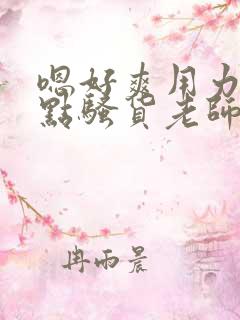 嗯好爽用力
點騷貨老師
冉雨晨